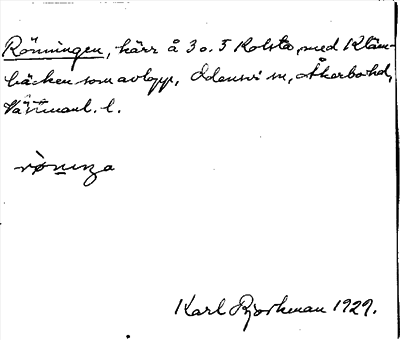 Rönningen, kärr å 3 o. 5 Kolsta, med Kläm-
bäcken som avlopp, Odensvi sn, Åkerbo hd,
Västmanl. l.
Karl Björkman 1929.